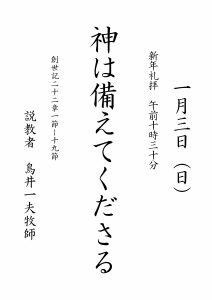 一月三日（日）
新年礼拝　午前十時三十分
神は備えてくださる
創世記二十二章一節－十九節
説教者　鳥井一夫牧師